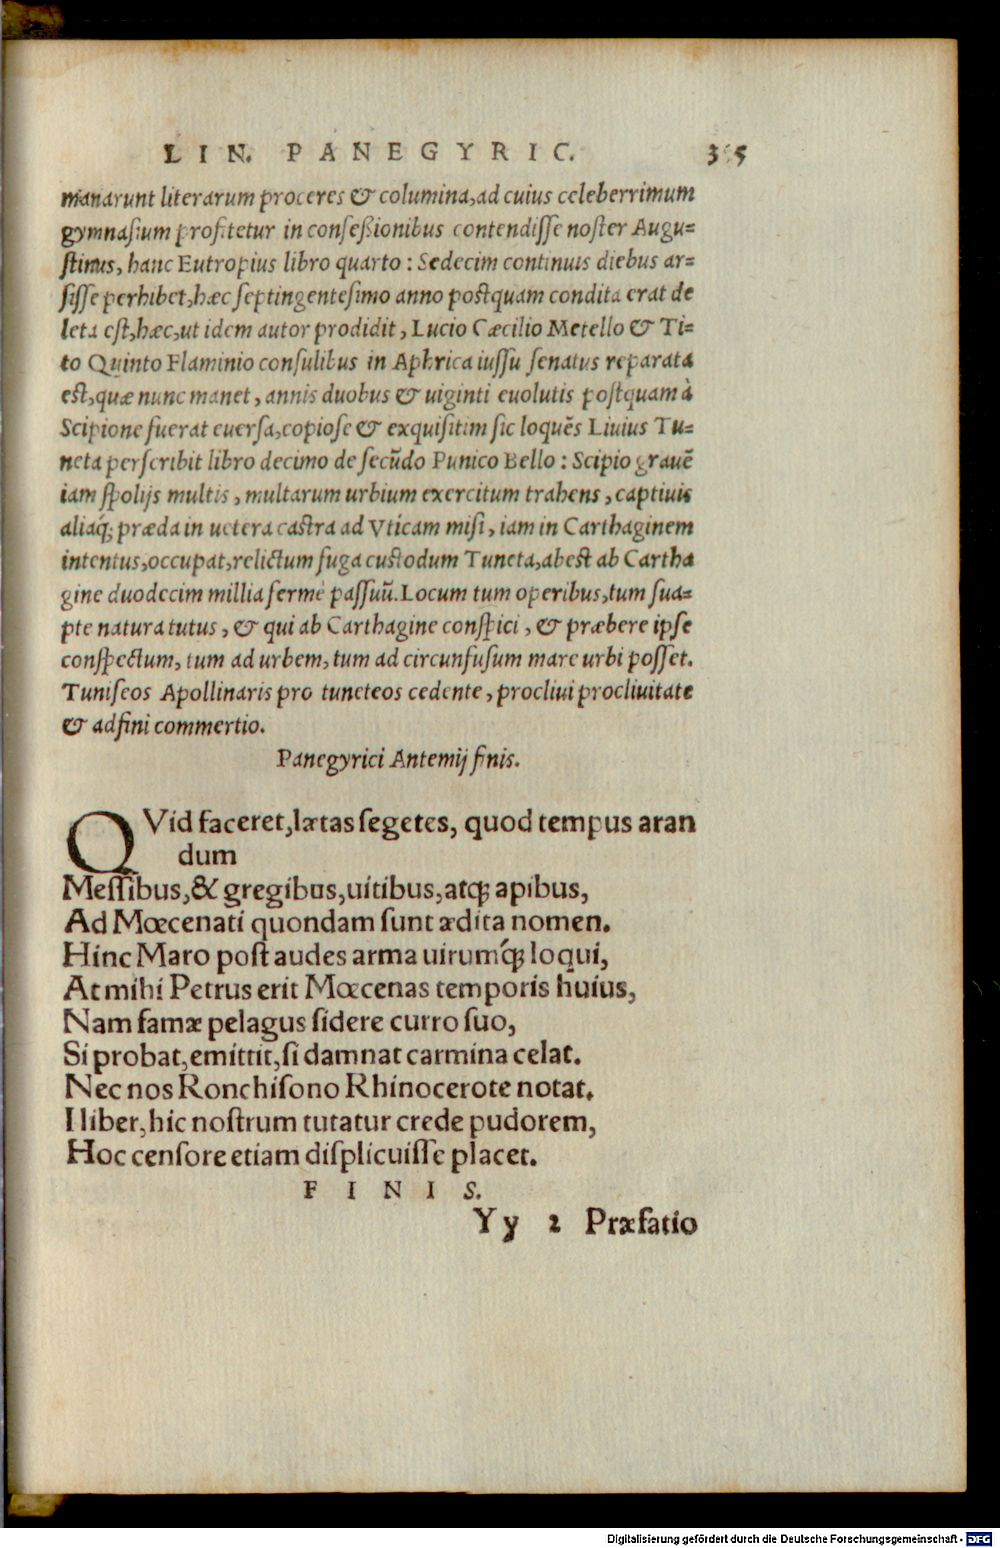 LIN. PANEGYRIC. 315
manarunt literarum proceres & columina, ad cuius celeberrimum
gymnasium profitetur in confeßionibus contendisse noster Augu=
stinus, hanc Eutropius libro quarto : Sedecim continuis diebus ar=
sisse perhibet, hæc septingentesimo anno postquam condita erat de
leta est, hæc, ut idem autor prodidit, Lucio Cæcilio Metello & Ti=
to Quinto Flaminio consulibus in Aphrica iussu senatus reparata
est, quæ nunc manet, annis duobus & uiginti euolutis postquam à
Scipione fuerat euersa, copiose & exquisitim sic loquẽs Liuius Tu=
neta perscribit libro decimo de secũdo Punico Bello : Scipio grauẽ
iam spolijs multis, multarum urbium exercitum trahens, captiuis
aliaq́; præda in uetera castra ad Vticam misi, iam in Carthaginem
intentus, occupat, relictum fuga custodum Tuneta, abest ab Cartha
gine duodecim millia fermè passuũ. Locum tum operibus, tum sua=
pte natura tutus, & qui ab Carthagine conspici, & præbere ipse
conspectum, tum ad urbem, tum ad circunfusum mare urbi posset.
Tuniseos Apollinaris pro tuneteos cedente, procliui procliuitate
& adfini commertio.
Panegyrici Antemij finis.
QVid faceret, lætas segetes, quod tempus aran
dum
Messibus, & gregibus, uitibus, atq; apibus,
Ad Mœcenati quondam sunt ædita nomen.
Hinc Maro post audes arma uirumq́; loqui,
At mihi Petrus erit Mœcenas temporis huius,
Nam famæ pelagus sidere curro suo,
Si probat, emittit, si damnat carmina celat.
Nec nos Ronchisono Rhinocerote notat.
I liber, hic nostrum tutatur crede pudorem,
Hoc censore etiam displicuisse placet.
FINIS.
Yy 2 Præfatio
Digitalisierung gefördert durch die Deutsche Forschungsgemeinschaft - DFG